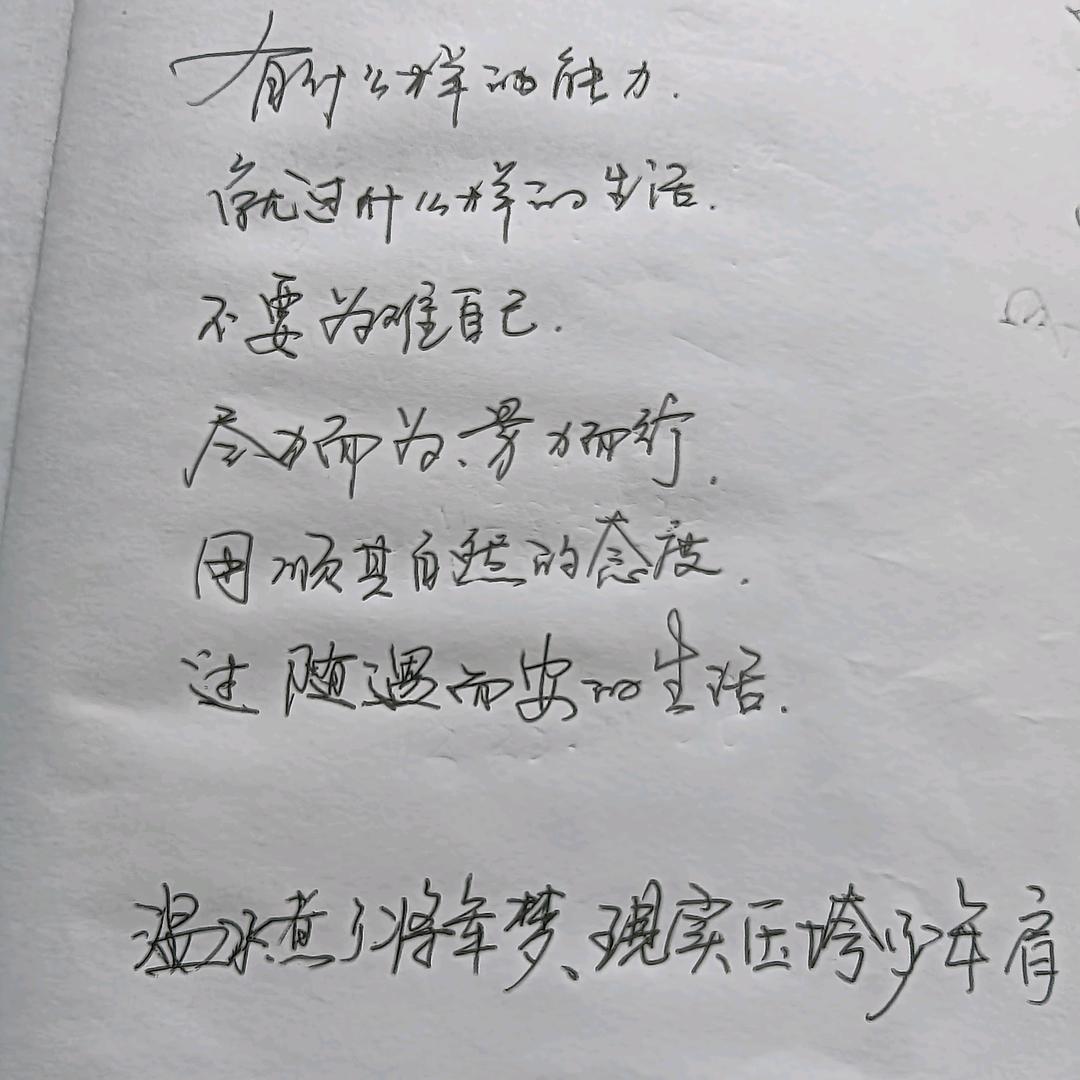 有什么样的能力.
就过什么样的生活.
不要为难自己.
尽力而为、量力而行.
用顺其自然的态度.
过随遇而安的生活.
温水煮了将年梦、现实压垮少年肩